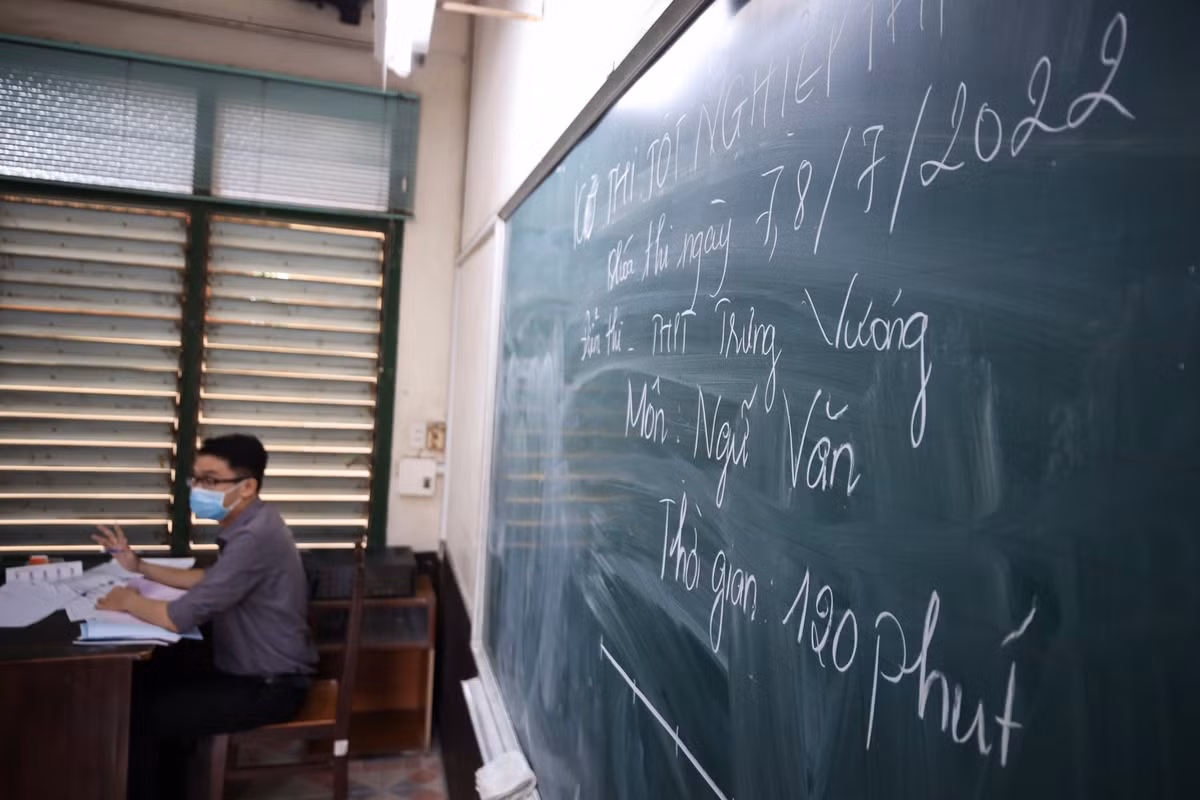 KỲ THI TỐT NGHIỆP THPT
Khóa thi ngày 7,8/7/2022
Điểm thi - THPT Trưng Vương
Môn: Ngữ Văn
Thời gian: 120 phút